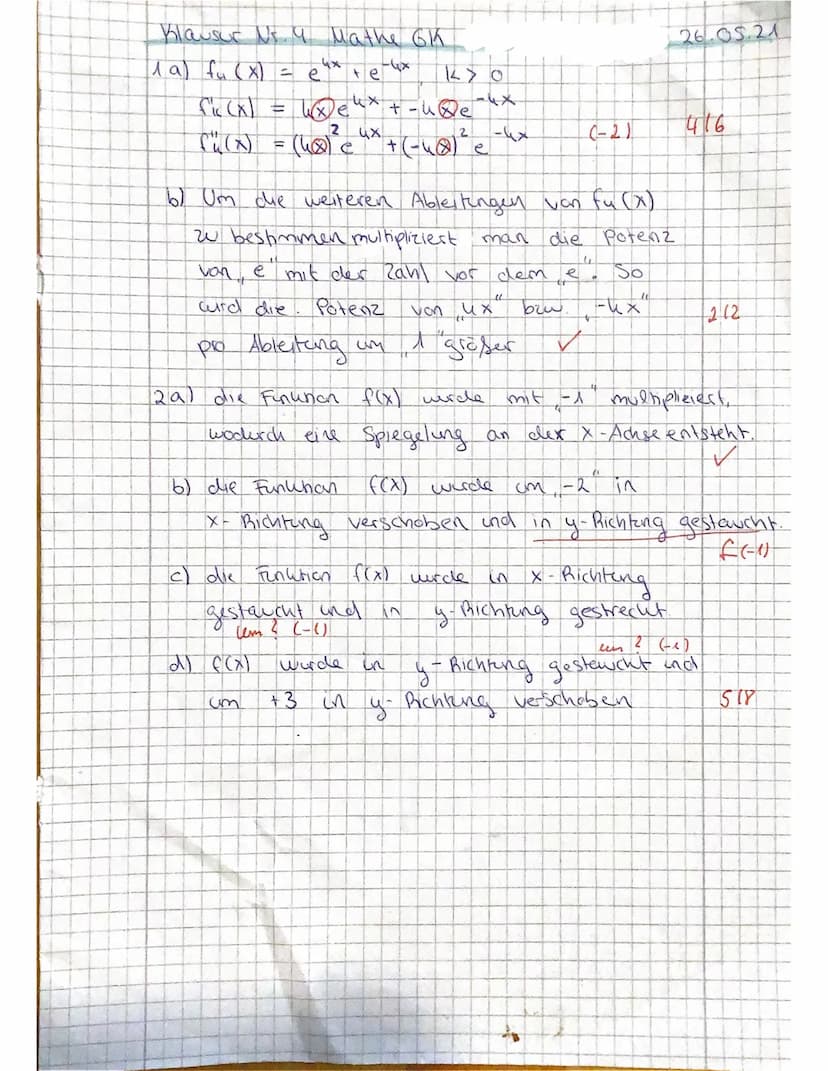 Klausur Nr. 4 Mathe GK 26.05.21
1a) fk(x) = e^kx + e^-kx, k > 0
f'k(x) = kxe^kx + -kxe^-kx
f''k(x) = (kx)²e^kx + (-kx)²e^-kx (-2) 4/6
b) Um die weiteren Ableitungen von fk(x)
zu bestimmen multipliziert man die Potenz
von „e" mit der Zahl vor dem „e". So
wird die Potenz von „kx" bzw. „-kx" 2/2
pro Ableitung um „1" größer ✓
2a) die Funktion f(x) wurde mit „-1" multipliziert,
wodurch eine Spiegelung an der x-Achse entsteht.
✓
b) die Funktion f(x) wurde um „-2" in
x-Richtung verschoben und in y-Richtung gestaucht.
f (-1)
c) die Funktion f(x) wurde in x-Richtung
gestaucht und in y-Richtung gestreckt
um? (-1)
um? (-1)
d) f(x) wurde in y-Richtung gestaucht und
um +3 in y-Richtung verschoben 5/8